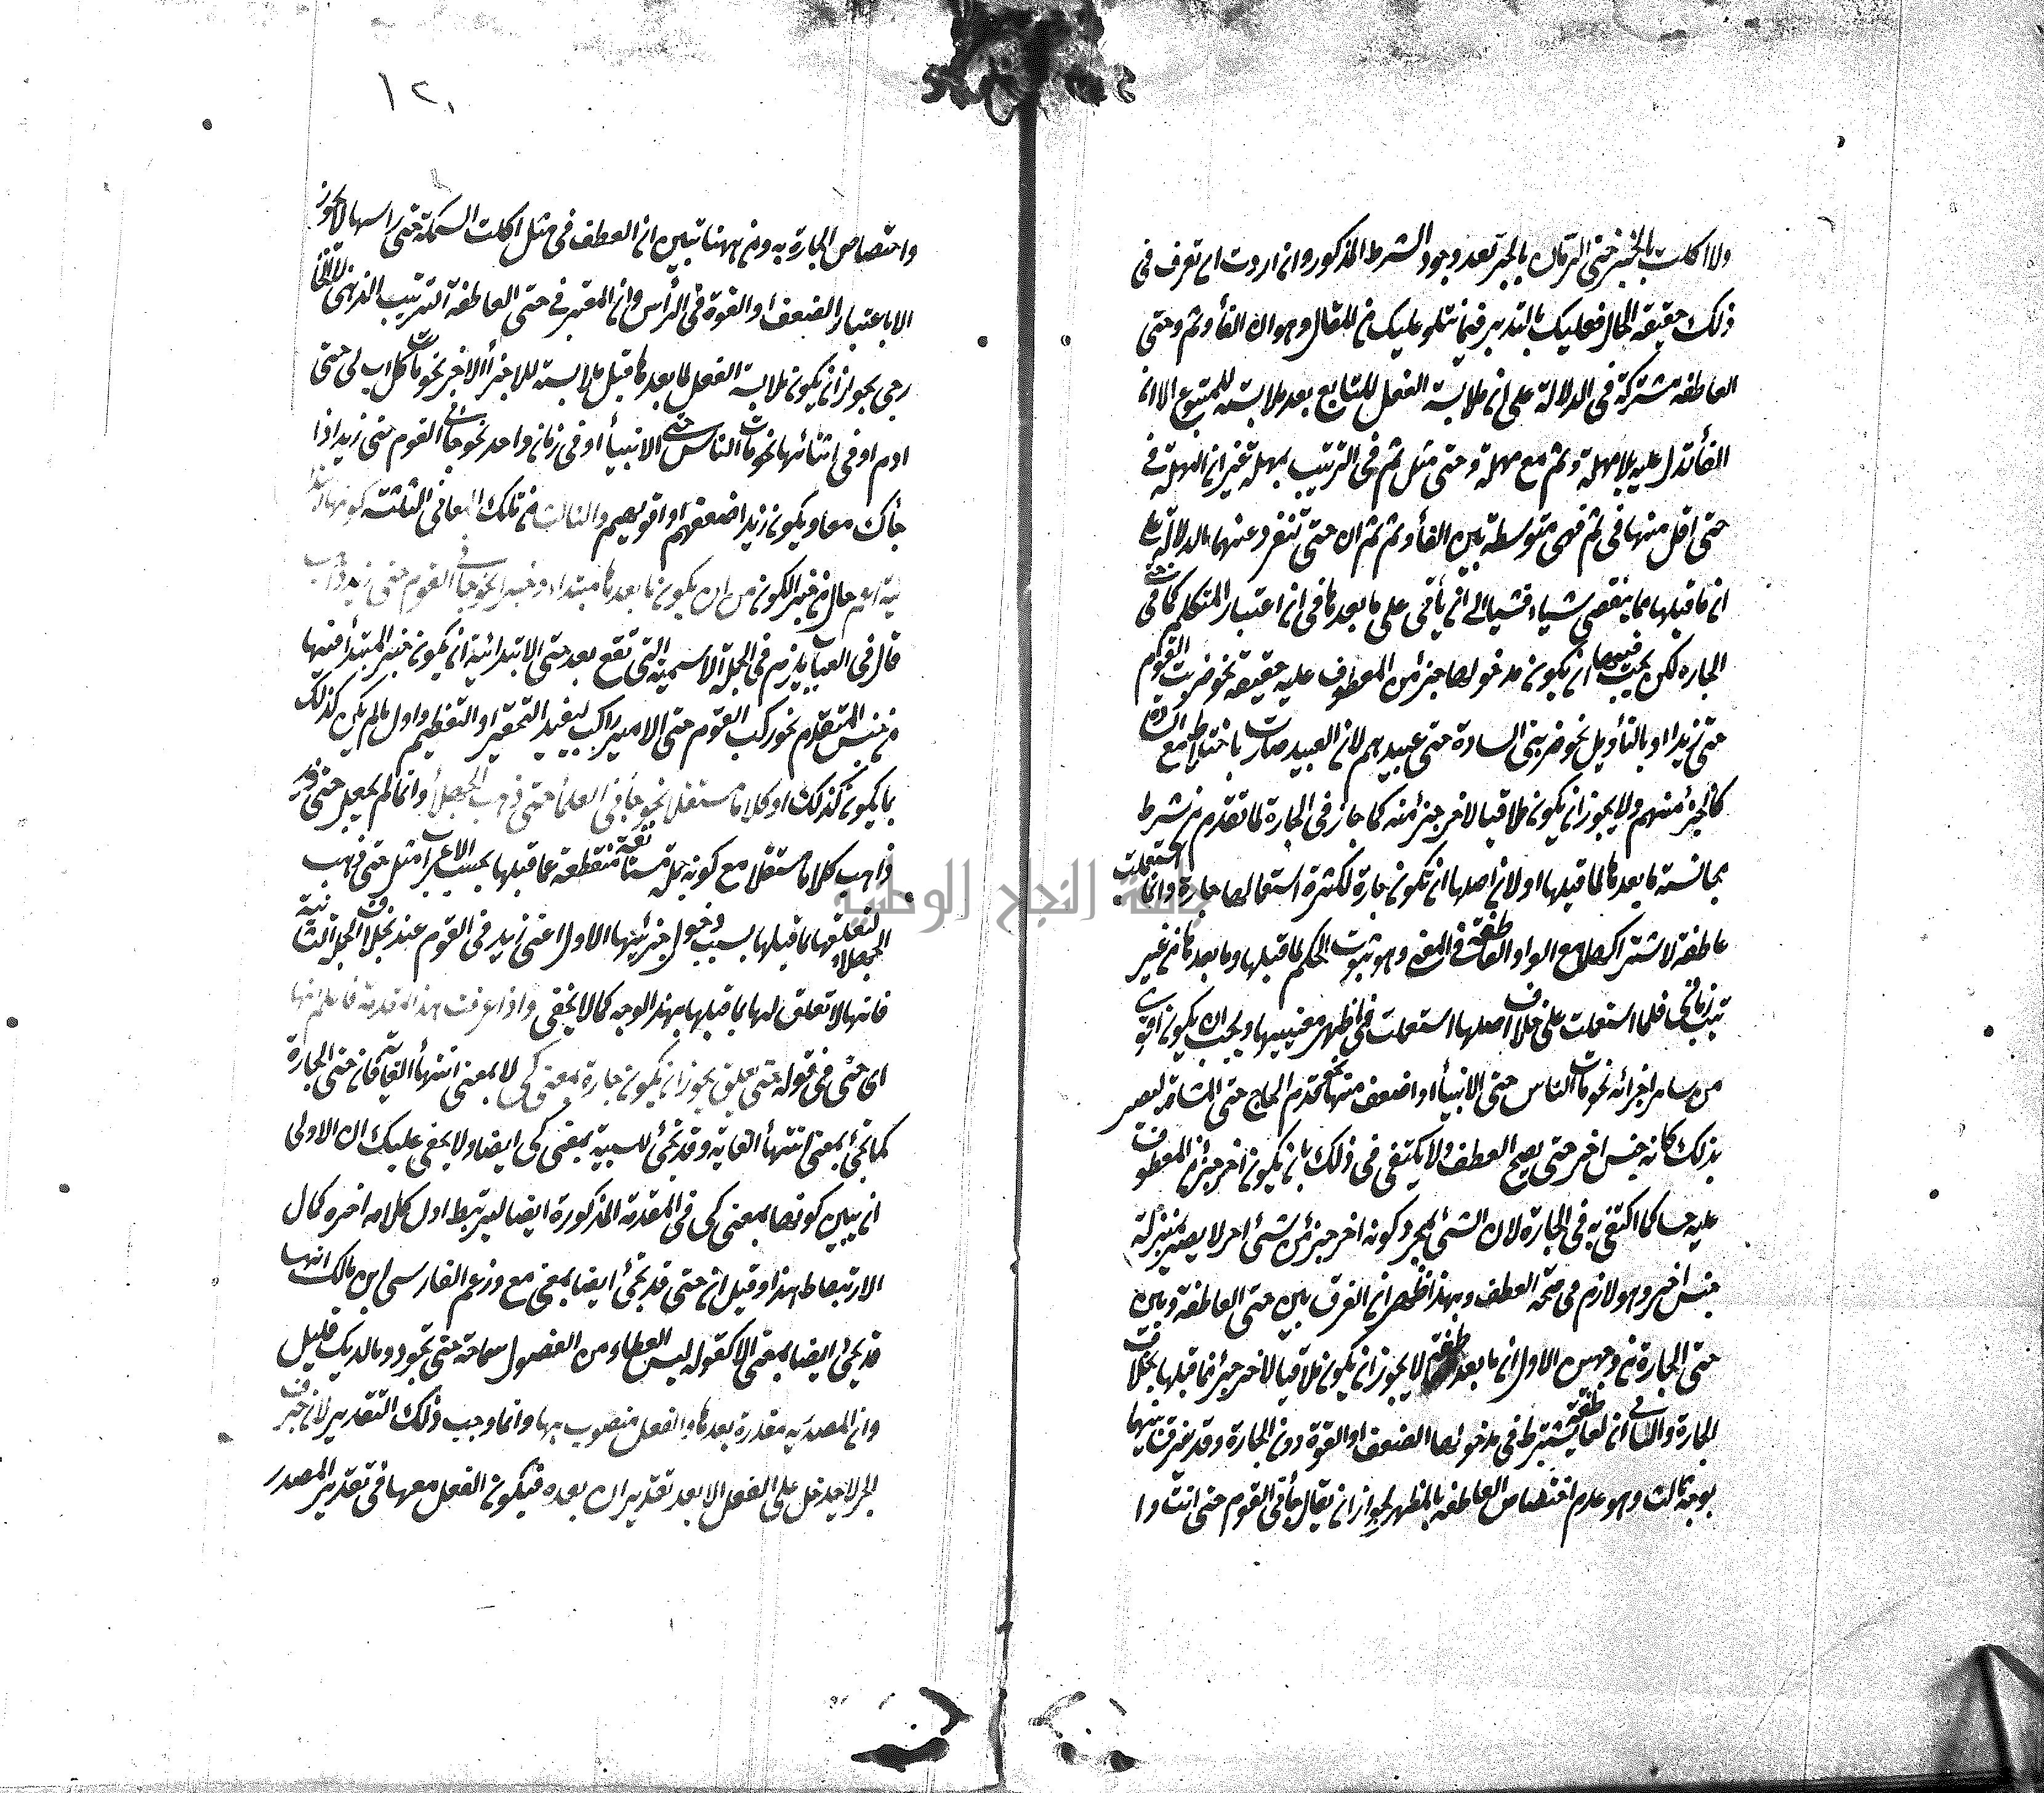 ولا اكلت بالخبز حتى الرمان بالجر بعد وجود الشرط المذكور وان اردت ان تعرف في
ذلك حقيقة الحال فعليك بالتدبر فيما نتلو عليك من المقال وهو ان الفأ وثم وحتى
العاطفة مشتركة في الدلالة على ان ملابسة الفعل للتابع بعد ملابسته للمتبوع الا ان
الفأ تدل عليه بلا مهلة وثم مع مهلة وحتى مثل ثم في الترتيب بمهلة غير ان المهلة في
حتى اقل منها في ثم فهي متوسطة بين الفأ وثم ثم ان حتى تنفرد عنهما بالدلالة على
ان ما قبلها مما ينقضي شياء فشيا الى ان يأتي على ما بعدها في اعتبار المتكلم كما في حتى
الجارة لكن يجب فيها ان يكون مدخولها جزأ من المعطوف عليه حقيقة نحو ضربت القوم
حتى زيدا او بالتأويل نحو ضربني السادة حتى عبيدهم لان العبيد صارت باختلاط مع السادة
كالجزء منهم ولا يجوز ان يكون ملاقيا لاخر جزء منه كما جاز في الجارة لما تقدم من شرط
مجانسة ما بعدها لما قبلها او لان اصلها ان تكون جارة لكثرة استعمالها جارة وانما استعملت
عاطفة لاشتراكها مع الواو العاطفة في المعنى وهو ثبوت الحكم لما قبلها وما بعدها من غير
ترتيب زماني فلما استعملت على خلاف اصلها استعملت في اظهر معنييها ويجب ان يكون اقوى
من سائر اجزائه نحو مات الناس حتى الانبيأ او اضعف منها نحو قدم الحاج حتى المشاة ليصير
بذلك كانه جنس اخر حتى يصح العطف ولا يكتفي في ذلك بان يكون اخر جزء من المعطوف
عليه حسا كما اكتفى به في الجارة لان الشئ بمجرد كونه اخر جزء من شئ اخر لا يصير بمنزلة
جنس اخر وهو لازم في صحة العطف وبهذا ظهر ان الفرق بين حتى العاطفة وبين
حتى الجارة من وجهين الاول ان ما بعد العاطفة لا يجوز ان يكون ملاقيا لاخر جزء مما قبلها بخلاف
الجارة والثاني ان العاطفة يشترط في مدخولها الضعف او القوة دون الجارة وقد يفرق بينهما
بوجه ثالث وهو عدم اختصاص العاطفة بالمظهر لجواز ان يقال جأني القوم حتى انت وا
١٢٠
واختصاص الجارة به ومن ههنا تبين ان العطف في مثل اكلت السمكة حتى راسها لا يجوز
الا باعتبار الضعف او القوة في الرأس وان المعتبر في حتى العاطفة الترتيب الذهني لا الخا
رجى بجواز ان يكون ملابسة الفعل لما بعدها قبل ملابسته للاجزأ الاخر نحو مات كل اب لي حتى
ادم او في اثنائها نحو مات الناس حتى الانبيأ او في زمان واحد نحو جاءني القوم حتى زيد اذا
جأك معا ويكون زيد اضعفهم او اقويهم والثالث من تلك المعاني الثلثة كونها ابتدا
ئية اعم حال من غير الكون من ان يكون ما بعدها مبتداء وخبرا نحو جاءني القوم حتى زيد ذاهب
قال في العباب يلزم في الجملة الاسمية التي تقع بعد حتى الابتدائية ان يكون خبر المبتدأ فيها
من جنس المتقدم نحو ركب القوم حتى الامير راكب ليفيد التحقير او التعظيم واول ما لم يكن كذلك
بما يكون كذلك او كلاما مستقلا نحو جأني العلمأ حتى ذهب الجهلأ وانما لم يجعل حتى زيد
ذاهب كلاما مستقلا مع كونه جملة مستانفة منقطعة عما قبلها بحسب الاعراب مثل حتى ذهب
الجهلاء لتعلقها بما قبلها بسبب دخول جزئيتها الاول اعني زيد في القوم عند بخلاف الجملة الثانية
فانها لا تعلق لها بما قبلها بهذا الوجه كما لا يخفى واذا عرفت هذا المقدمة فاعلم انها
اى حتى في قوله حتى يعلق يجوز ان يكون جارة بمعنى كى لا بمعنى انتهأ الغاية فان حتى الجارة
كما تجئ بمعنى انتهأ الغاية وقد تجئ للسببية بمعنى كى ايضا ولا يخفى عليك ان الاولى
ان يبين كونها بمعنى كى في المقدمة المذكورة ايضا ليرتبط اول كلامه اخره كمال
الارتباط هذا وقيل ان حتى قد يجئ ايضا بمعنى مع وزعم الفارسى ابن مالك انها
قد يجئ ايضا بمعنى الا كقوله ليس العطاء من الفضول سماحة حتى تجود وما لديك قليل
وان المصدرية مقدرة بعدها والفعل منصوب بها وانما وجب ذلك التقدير لان حرف
الجر لا يدخل على الفعل الا بعد تقدير ان بعده فيكون الفعل معها في تقدير المصدر
جامعة النجاح الوطنية